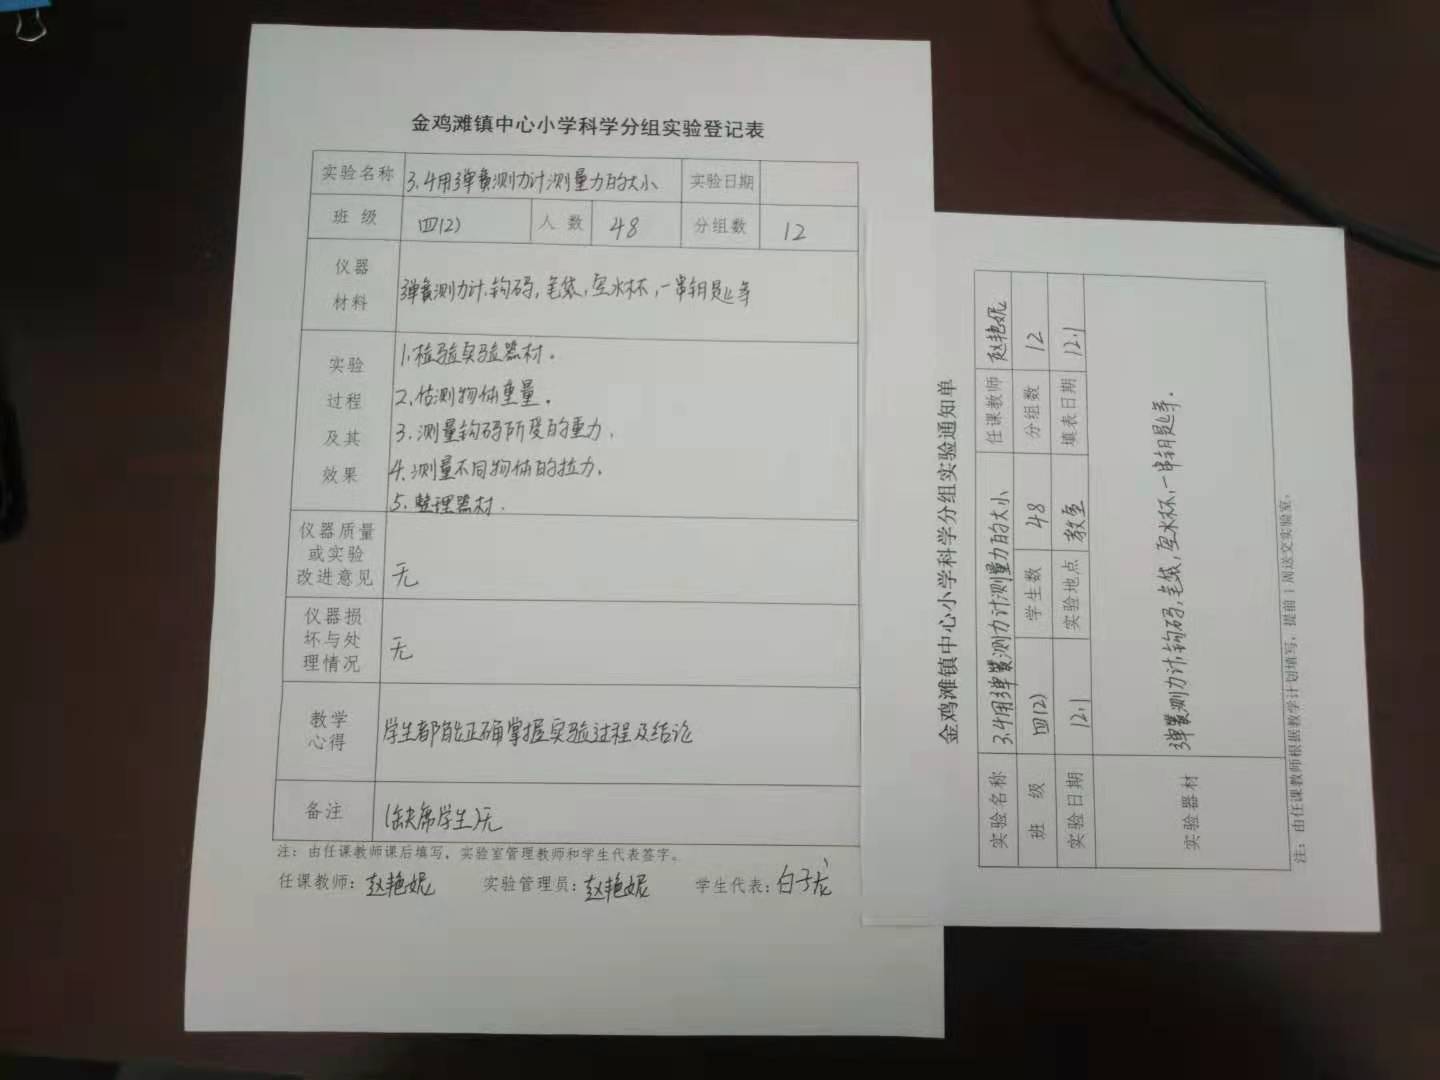 金鸡滩镇中心小学科学分组实验登记表
实验名称 3.4用弹簧测力计测量力的大小 实验日期
班 级 四(2) 人 数 48 分组数 12
仪器
材料
弹簧测力计、钩码,笔袋,空水杯,一串钥匙等
实验
过程
及其
效果
1.检验实验器材。
2.估测物体重量。
3.测量钩码所受的重力.
4.测量不同物体的拉力.
5.整理器材.
仪器质量
或实验
改进意见
无
仪器损
坏与处
理情况
无
教学
心得
学生都能正确掌握实验过程及结论
备注 (缺席学生)无
注:由任课教师课后填写,实验室管理教师和学生代表签字。
任课教师:赵艳妮 实验管理员:赵艳妮 学生代表:白子龙
金鸡滩镇中心小学科学分组实验通知单
实验名称 3.4用弹簧测力计测量力的大小 任课教师 赵艳妮
班 级 四(2) 学生数 48 分组数 12
实验日期 12.1 实验地点 教室 填表日期 12.1
实验器材 弹簧测力计,钩码,笔袋,空水杯,一串钥匙等.
注:由任课教师根据教学计划填写,提前1周送交实验室。